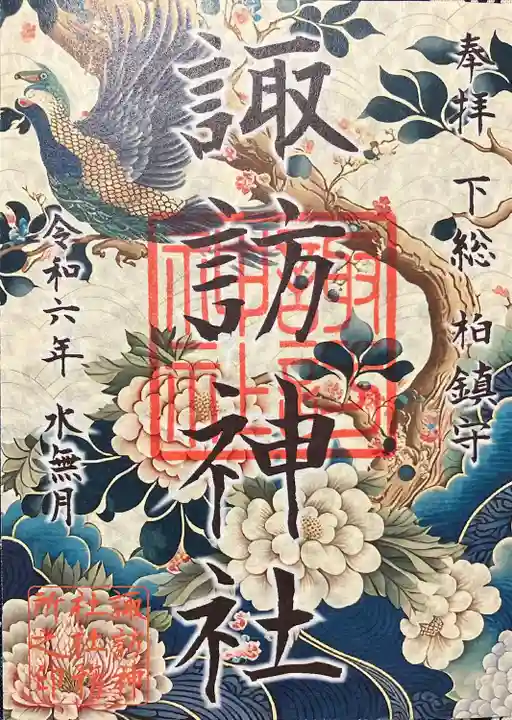 奉拝 下総 柏鎮守
諏訪神社
令和六年 水無月
諏訪神社
諏訪神
社社務
所之印